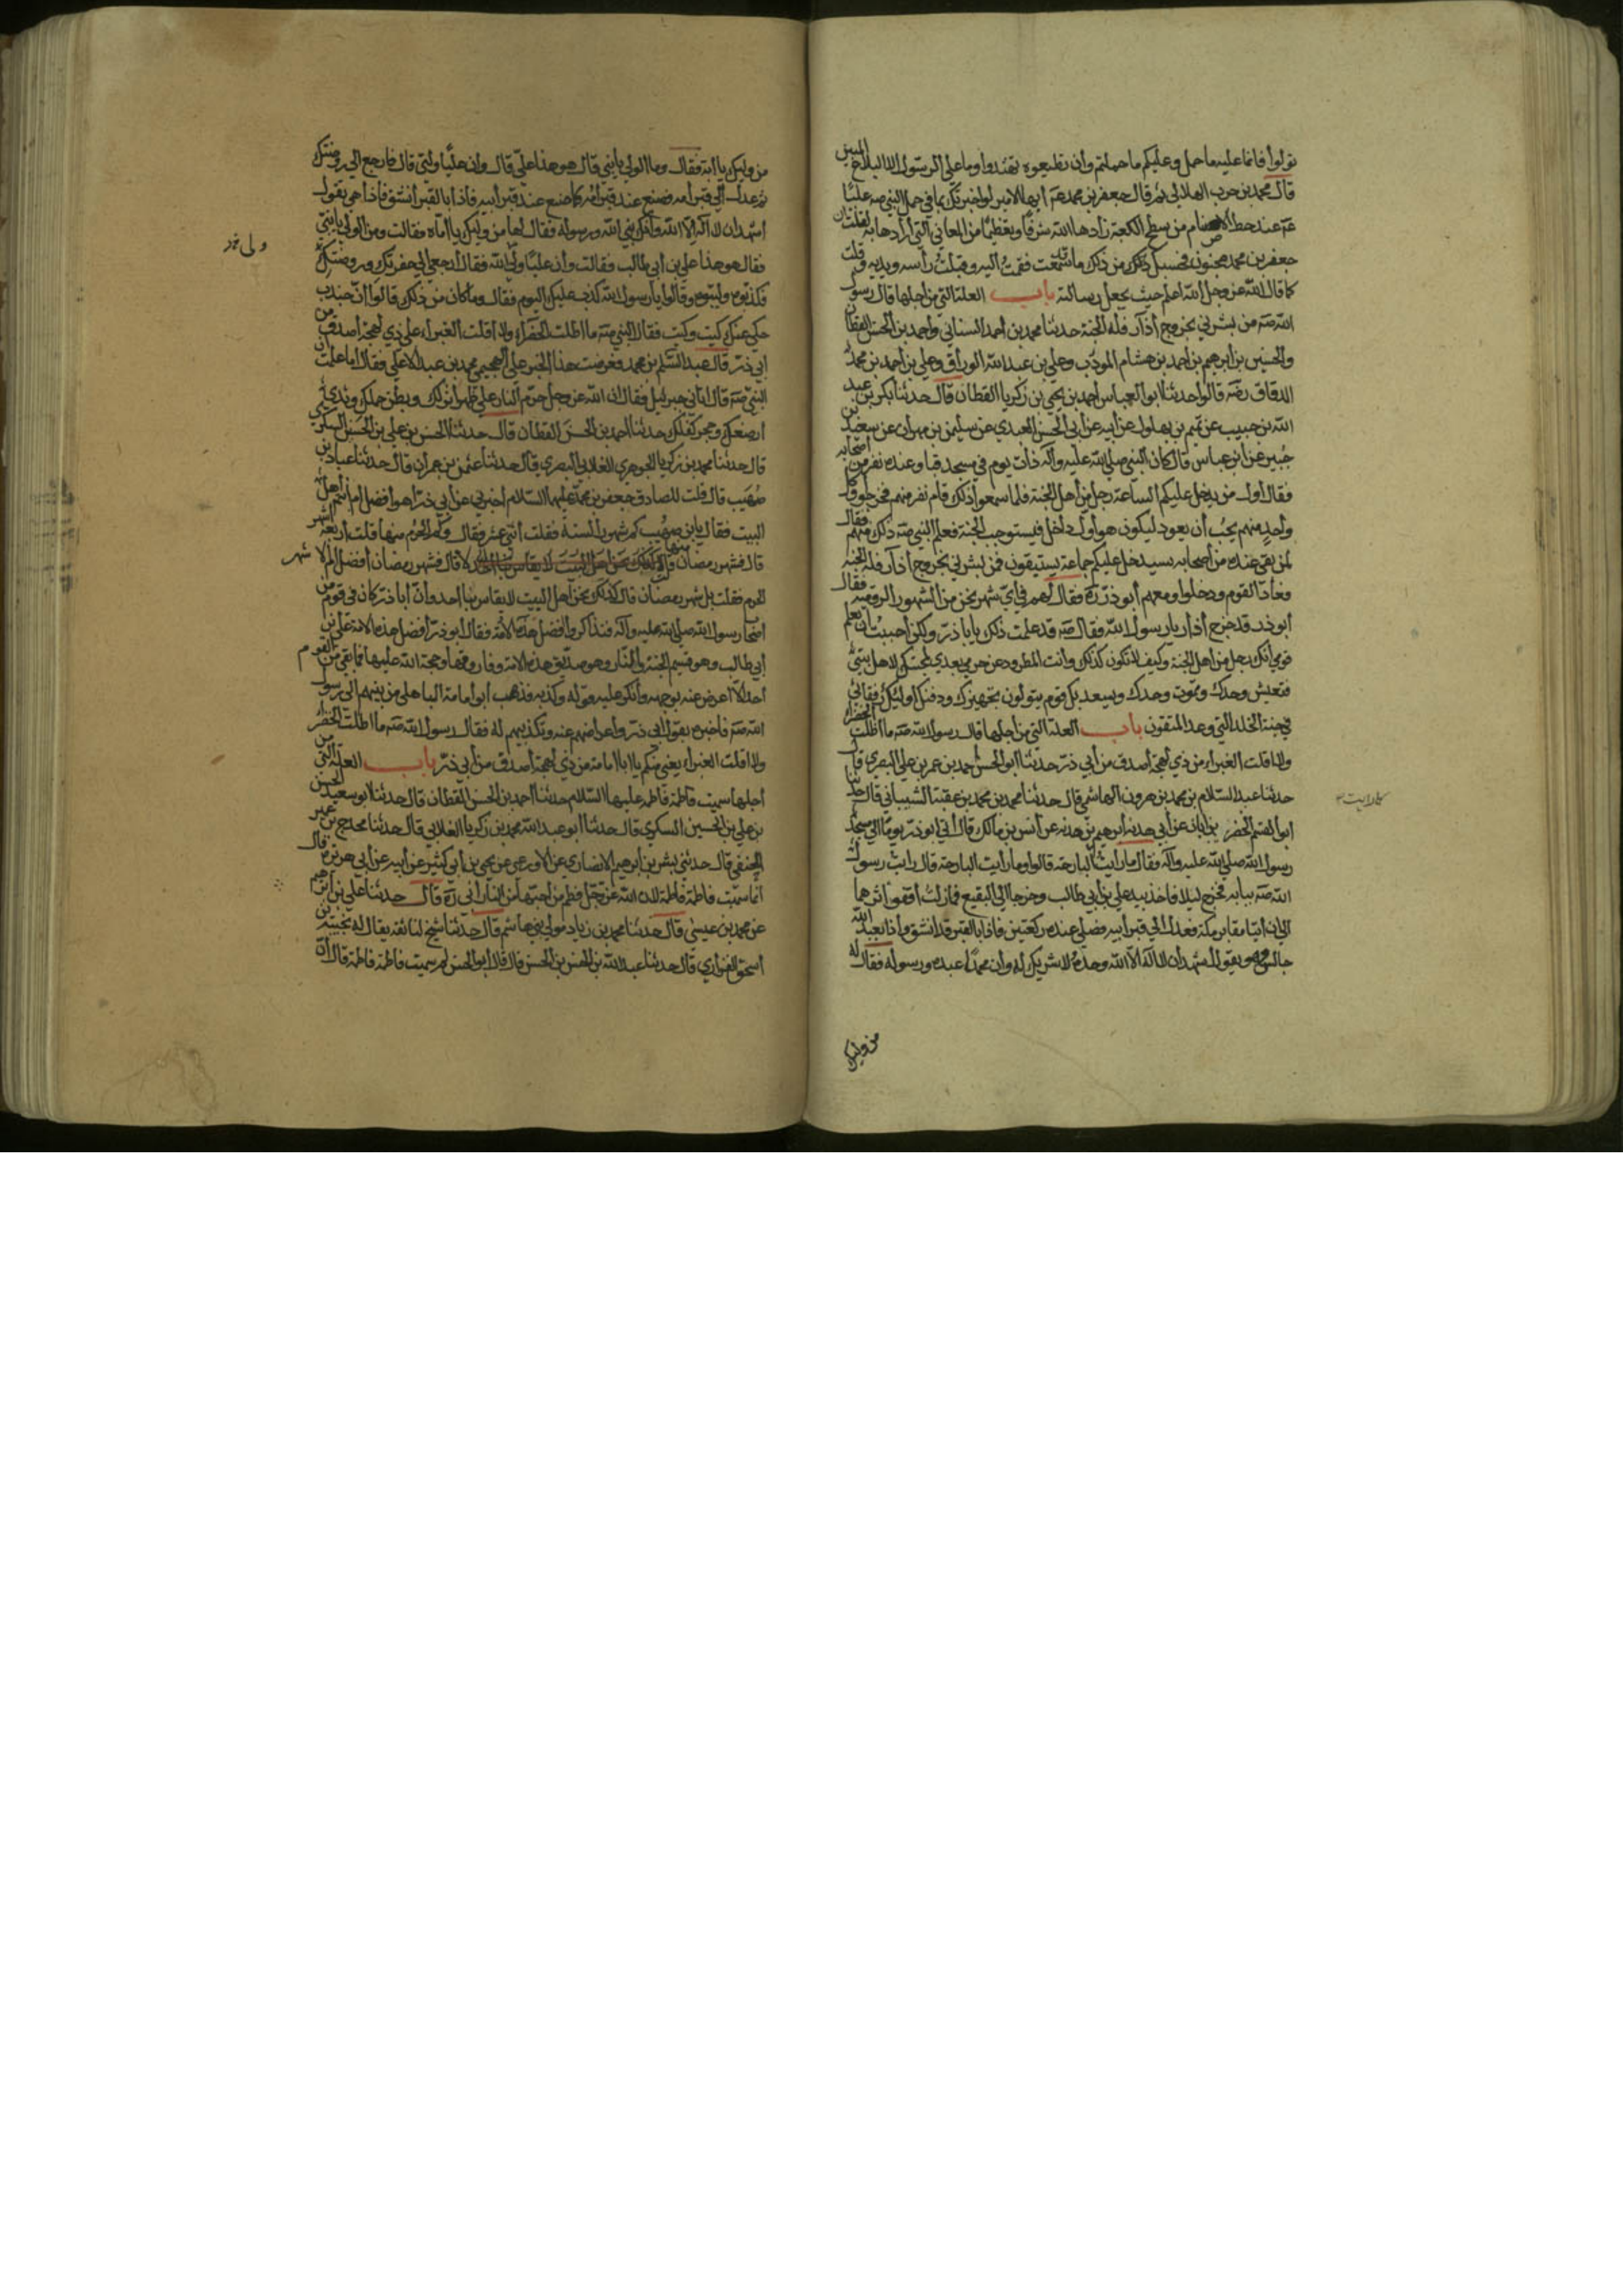 تولوا فانما عليه ما حمل وعليكم ما حملتم وان تطيعوه تهتدوا وما على الرسول الا البلاغ المبين
قال محمد بن حرب الهلالي ثم قال جعفر بن محمد عه ايها الامير لو اخبرتك بما في حمل النبي صه عليّا
عه عند حط الاصنام من سطح الكعبة زادها الله شرفًا وتعظيمًا من المعاني التي ارادها به لقلت ان
جعفر بن محمد مجنون فحسبك ذلك من ذلك ما سمعت فقمت اليه وقبلت رأسه ويديه وقلت
كما قال الله عز وجل الله اعلم حيث يجعل رسالته باب العلة التي من اجلها قال رسول
الله صه من بشرني بخروج أذار فله الجنة حدثنا محمد بن احمد السناني واحمد بن الحسن القطان
والحسين بن ابرهيم بن احمد بن هشام المودب وعلي بن عبد الله الوراق وعلي بن احمد بن محمد
الدقاق رضه قالوا حدثنا ابو العباس احمد بن يحيى بن زكريا القطان قال حدثنا بكر بن عبد
الله بن حبيب عن تميم بن بهلول عن ابيه عن ابي الحسن العبدي عن سليمن بن مهران عن سعيد بن
جبير عن ابن عباس قال كان النبي صلى الله عليه وآله ذات يوم في مسجد قبا وعنده نفر من اصحابه
فقال اول من يدخل عليكم الساعة رجل من اهل الجنة فلما سمعوا ذلك قام نفر منهم فخرجوا وكل
واحد منهم يحب أن يعود ليكون هو اول داخل فيستوجب الجنة فعلم النبي صه ذلك منهم فقال
لمن بقي عنده من أصحابه سيدخل عليكم جماعة يستبقون فمن بشرني بخروج أذار فله الجنة
فعاد القوم ودخلوا ومعهم أبو ذر ره فقال لهم في اي شهر نحن من الشهور الرومية فقال
أبو ذر قد خرج أذار يا رسول الله فقال صه قد علمت ذلك يا با ذر ولكن احببت أن يعلم
قومي أنك رجل من اهل الجنة وكيف لا تكون كذلك وانت المطرود عن حرمي بعدي لمحبتك لاهل بيتي
فتعيش وحدك وتموت وحدك ويسعد بك قوم يتولون تجهيزك ودفنك اولئك رفقائي
في جنة الخلد التي وعد المتقون باب العلة التي من اجلها قال رسول الله صه ما اظلت الخضراء
ولا اقلت الغبراء من ذي لهجة أصدق من أبي ذر حدثنا ابو الحسن احمد بن عمر بن علي البصري قال
حدثنا عبد السلام بن محمد بن هرون الهاشمي قال حدثنا محمد بن محمد بن عقبة الشيباني قال حدثنا
ابو القسم الخضر بن ابان عن أبي هدبه ابرهيم بن هدبه عن أنس بن مالك قال اتى ابو ذر يومًا الى مسجد
رسول الله صلى الله عليه وآله فقال ما رايت البارحة قالوا وما رايت البارحة قال رايت رسول
الله صه ببابه فخرج ليلا فاخذ بيد علي بن أبي طالب وخرجا الى البقيع فما زلت أقفو اثرهما
الى ان أتيا مقابر مكة فعدل الى قبر أبيه فصلى عنده ركعتين فاذا بالقبر قد انشق واذا بعبد الله
جالس وهو يقول اشهد أن لا اله الا الله وحده لا شريك له وان محمدًا عبده ورسوله فقال له
من وليك
من وليك يا ابه فقال وما الولي يا بني قال هو هذا علي قال وان عليّا وليي قال فارجع الى روضتك
ثم عدل الى قبر أمه فصنع عند قبر امه كما صنع عند قبر أبيه فاذا بالقبر انشق فاذا هي تقول
اشهد ان لا اله الا الله وأنك نبي الله ورسوله فقال لها من وليك يا اماه فقالت ومن الولي يا بني
فقال هو هذا علي بن أبي طالب فقالت وأن عليًا ولي الله فقال ارجعي الى حفرتك وروضتك
فكذبوه ولببوه وقالوا يا رسول الله كذب عليك اليوم فقال وما كان من ذلك قالوا ان جندب
حكى عنك كيت وكيت فقال النبي صه ما اظلت الخضراء ولا اقلت الغبراء على ذي لهجة اصدق من
ابي ذر قال عبد السلم بن محمد فعرضت هذا الخبر على الهجيمي محمد بن عبد الاعلى فقال اما علمت ان
النبي صه قال اتاني جبرئيل فقال ان الله عز وجل حرم النار على ظهر أنزلك وبطن حملك وثدي
ارضعك وحجر كفلك حدثنا احمد بن الحسن القطان قال حدثنا الحسن بن علي بن الحسين السكري
قال حدثنا محمد بن زكريا الجوهري الغلابي البصري قال حدثنا عثمن بن عمران قال حدثنا عباد بن
صهيب قال قلت للصادق جعفر بن محمد عليهما السلام اخبرني عن أبي ذر اهو افضل ام انتم أهل
البيت فقال يا بن صهيب كم شهور السنة فقلت أثنى عشر فقال وكم الحرم منها قلت أربعة اشهر
قال فشهر رمضان منها قال لا قال فشهر رمضان أفضل ام الاشهر
الحرم فقلت بل شهر رمضان قال فكذلك نحن أهل البيت لا يقاس بنا احد وان أبا ذر كان في قوم من
اصحاب رسول الله صلى الله عليه وآله فتذاكروا فضل هذه الامة فقال ابو ذر أفضل هذه الامة علي بن
أبي طالب وهو قسيم الجنة والنار وهو صديق هذه الامة وفاروقها وحجة الله عليها فما بقي من القوم
احد الا اعرض عنه بوجهه وأنكر عليه قوله وكذبه فذهب ابو امامة الباهلي من بينهم الى رسول
الله صه فاخبره بقول ابي ذر واعراضهم عنه وتكذيبهم له فقال رسول الله صه ما اظلت الخضراء
ولا اقلت الغبراء يعني منكم يا ابا أمامة من ذي لهجة أصدق من أبي ذر باب العلة التي من
أجلها سميت فاطمة فاطمه عليها السلام حدثنا احمد بن الحسن القطان قال حدثنا ابو سعيد الحسن
بن علي بن الحسين السكري قال حدثنا ابو عبد الله محمد بن زكريا الغلابي قال حدثنا محدج بن عمير
الحنفي قال حدثني بشر بن ابرهيم الانصاري عن الاوزعي عن يحيى بن أبي كثير عن أبيه عن أبي هريرة قال
انما سميت فاطمة فاطمة لان الله عز وجل فطم من احبها من النار ابي ره قال حدثنا علي بن ابرهيم
عن محمد بن عيسى قال حدثنا محمد بن زياد مولى بني هاشم قال حدثنا شيخ لنا ثقة يقال له نجية بن
أسحق الفزاري قال حدثنا عبد الله بن الحسن بن الحسن قال قال ابو الحسن لم سميت فاطمة فاطمة قال ان